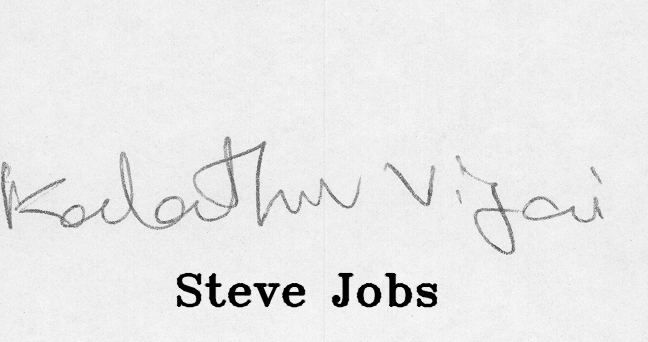 Kalathur Vijai
Steve Jobs